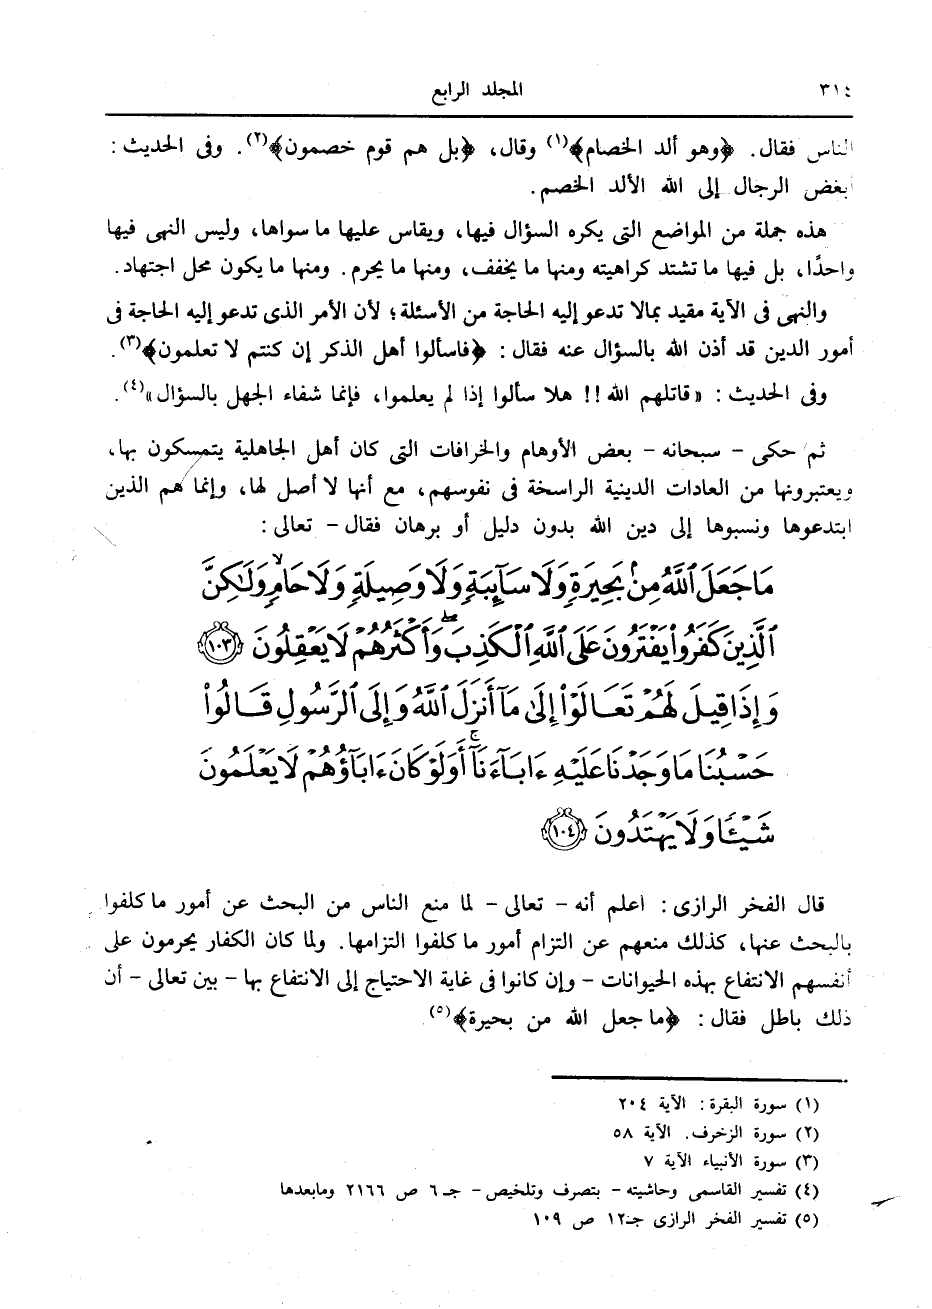 ٣١٤ المجلد الرابع
الناس فقال. ﴿وهو ألد الخصام﴾(١) وقال، ﴿بل هم قوم خصمون﴾(٢). وفى الحديث :
أبغض الرجال إلى الله الألد الخصم.
هذه جملة من المواضع التى يكره السؤال فيها، ويقاس عليها ما سواها، وليس النهى فيها
واحدًا، بل فيها ما تشتد كراهيته ومنها ما يخفف، ومنها ما يحرم. ومنها ما يكون محل اجتهاد.
والنهى فى الآية مقيد بمالا تدعو إليه الحاجة من الأسئلة؛ لأن الأمر الذى تدعو إليه الحاجة فى
أمور الدين قد أذن الله بالسؤال عنه فقال : ﴿فاسألوا أهل الذكر إن كنتم لا تعلمون﴾(٣).
وفى الحديث : «قاتلهم الله!! هلا سألوا إذا لم يعلموا، فإنما شفاء الجهل بالسؤال»(٤).
ثم حكى - سبحانه - بعض الأوهام والخرافات التى كان أهل الجاهلية يتمسكون بها،
ويعتبرونها من العادات الدينية الراسخة فى نفوسهم، مع أنها لا أصل لها، وإنما هم الذين
ابتدعوها ونسبوها إلى دين الله بدون دليل أو برهان فقال - تعالى :
مَا جَعَلَ ٱللَّهُ مِنۢ بَحِيرَةٖ وَلَا سَآئِبَةٖ وَلَا وَصِيلَةٖ وَلَا حَامٖۙ وَلَٰكِنَّ
ٱلَّذِينَ كَفَرُواْ يَفۡتَرُونَ عَلَى ٱللَّهِ ٱلۡكَذِبَۖ وَأَكۡثَرُهُمۡ لَا يَعۡقِلُونَ ١٠٣
وَإِذَا قِيلَ لَهُمۡ تَعَالَوۡاْ إِلَىٰ مَآ أَنزَلَ ٱللَّهُ وَإِلَى ٱلرَّسُولِ قَالُواْ
حَسۡبُنَا مَا وَجَدۡنَا عَلَيۡهِ ءَابَآءَنَآۚ أَوَلَوۡ كَانَ ءَابَآؤُهُمۡ لَا يَعۡلَمُونَ
شَيۡـٔٗا وَلَا يَهۡتَدُونَ ١٠٤
قال الفخر الرازى : اعلم أنه - تعالى - لما منع الناس من البحث عن أمور ما كلفوا
بالبحث عنها، كذلك منعهم عن التزام أمور ما كلفوا التزامها. ولما كان الكفار يحرمون على
أنفسهم الانتفاع بهذه الحيوانات - وإن كانوا فى غاية الاحتياج إلى الانتفاع بها - بين تعالى - أن
ذلك باطل فقال : ﴿ما جعل الله من بحيرة﴾(٥).
(١) سورة البقرة : الآية ٢٠٤
(٢) سورة الزخرف. الآية ٥٨
(٣) سورة الأنبياء الآية ٧
(٤) تفسير القاسمى وحاشيته - بتصرف وتلخيص - جـ ٦ ص ٢١٦٦ ومابعدها
(٥) تفسير الفخر الرازى جـ١٢ ص ١٠٩